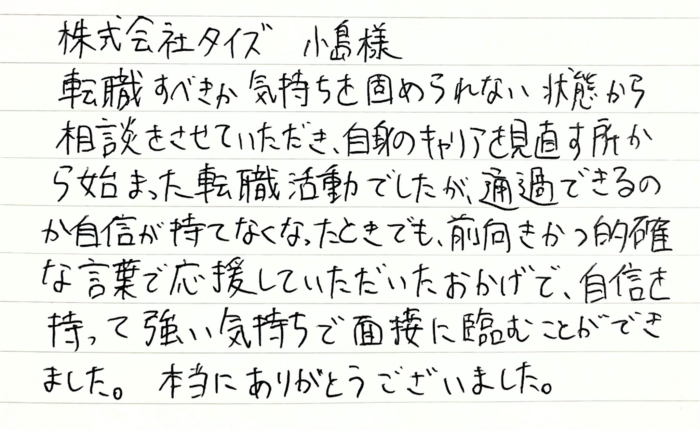 株式会社タイズ 小島様
転職すべきか気持ちを固められない状態から
相談をさせていただき、自身のキャリアを見直す所か
ら始まった転職活動でしたが、通過できるの
か自信が持てなくなったときでも、前向きかつ的確
な言葉で応援していただいたおかげで、自信を
持って強い気持ちで面接に臨むことができ
ました。 本当にありがとうございました。